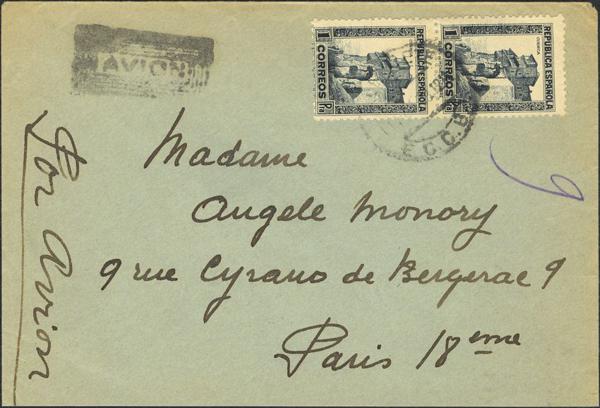 AVION
1
CORREOS
Pta
REPUBLICA ESPAÑOLA
1
CORREOS
Pta
CUENCA
REPUBLICA ESPAÑOLA
E.C.C.B
9
Por Avion
Madame
Angele Monory
9 rue Cyrano de Bergerac 9
Paris 18eme